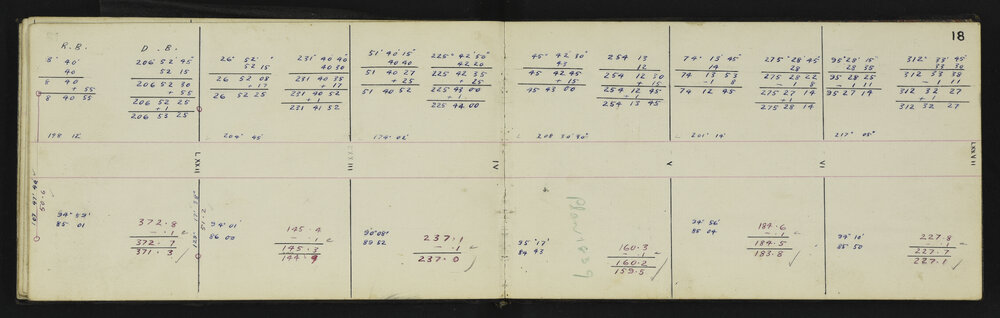 18
R.B.
D.B.
8° 40'
40
8 40
+ 55
8 40 55
206 52 45
52 15
206 52 30
+ 55
206 52 25
+ 1
206 53 25
26° 52'
52 15
26 52 08
+ 17
26 52 25
231° 40' 40
40 30
231 40 35
+ 17
231 40 52
+ 1
231 41 52
51° 40' 15"
40 40
51 40 27
+ 25
51 40 52
225° 42' 50"
42 20
225 42 35
+ 25
225 43 00
+ 1
225 44 00
45° 42' 30"
43
45 42 45
+ 15
45 43 00
254 13
12
254 12 30
+ 15
254 12 45
+ 1
254 13 45
74° 13' 45"
14
74 13 53
- 1 8
74 12 45
275° 28' 45
28
275 28 22
- 1 8
275 27 14
+ 1
275 28 14
95° 28' 15"
28 35
95 28 25
- 1 11
95 27 14
312° 33' 45
33 30
312 33 38
- 1 11
312 32 27
+ 1
312 32 27
198 12
204° 45'
174° 02'
208° 30' 30"
201° 14'
217° 05"
LXXII
LXXIII
IV
V
VI
LXXVII
94° 59'
85 01
372.8
- .1 c
372.7
371.3
94° 01
86 00
145.4
- .1 c
145.3
144.9
90° 08'
89 52
237.1
- .1 c
237.0
Plan 1559
95° 17'
84 43
160.3
- .1 c
160.2
159.5
94° 56'
85 04
184.6
- .1 c
184.5
183.8
94° 10'
85 50
227.8
- .1 c
227.7
227.1